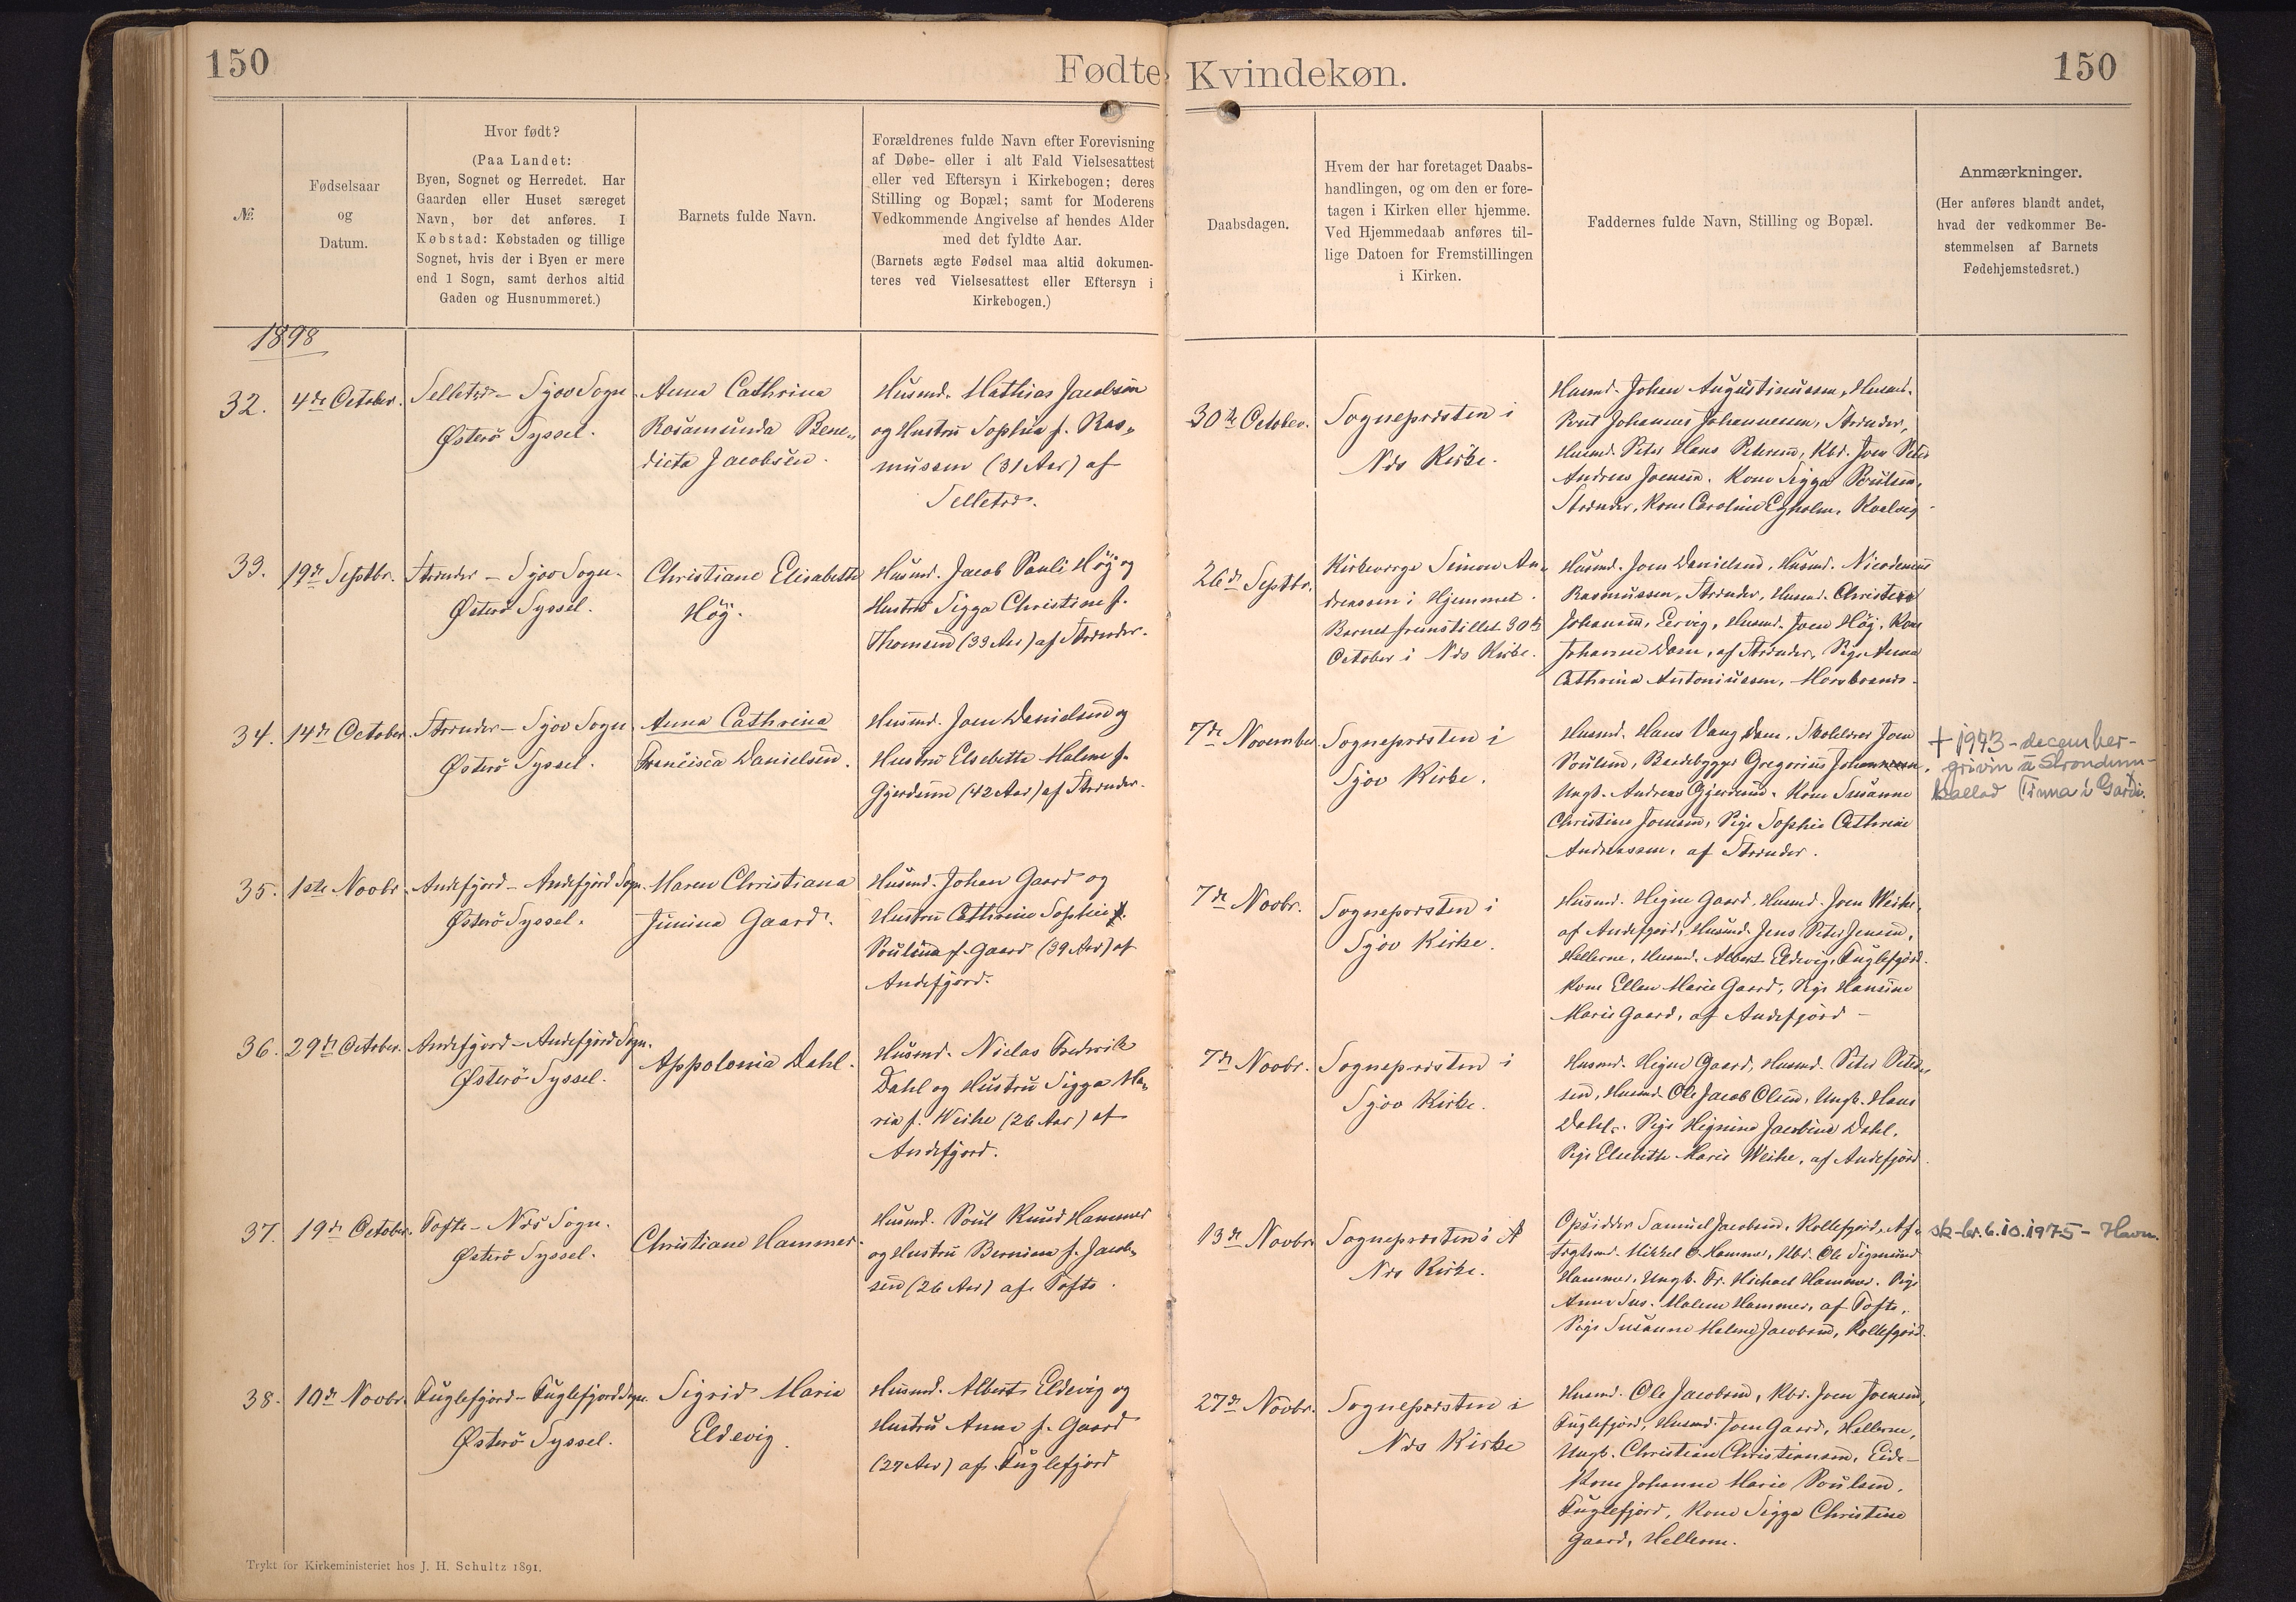 150
Fødte Kvindekøn.
150
№
Fødselsaar
og
Datum.
Hvor født?
(Paa Landet:
Byen, Sognet og Herredet. Har
Gaarden eller Huset særeget
Navn, bør det anføres. I
Købstad: Købstaden og tillige
Sognet, hvis der i Byen er mere
end 1 Sogn, samt derhos altid
Gaden og Husnummeret.)
Barnets fulde Navn.
Forældrenes fulde Navn efter Forevisning
af Døbe- eller i alt Fald Vielsesattest
eller ved Eftersyn i Kirkebogen; deres
Stilling og Bopæl; samt for Moderens
Vedkommende Angivelse af hendes Alder
med det fyldte Aar.
(Barnets ægte Fødsel maa altid dokumen-
teres ved Vielsesattest eller Eftersyn i
Kirkebogen.)
Daabsdagen.
Hvem der har foretaget Daabs-
handlingen, og om den er fore-
tagen i Kirken eller hjemme.
Ved Hjemmedaab anføres til-
lige Datoen for Fremstillingen
i Kirken.
Faddernes fulde Navn, Stilling og Bopæl.
Anmærkninger.
(Her anføres blandt andet,
hvad der vedkommer Be-
stemmelsen af Barnets
Fødehjemstedsret.)
1898
32.
4de October.
Selletræ - Sjov Sogn
Østerö Syssel.
Anna Cathrina
Rosamunda Bene„
dicta Jacobsen.
Husmd. Mathias Jacobsen
og Hustru Sophia f. Ras„
mussen (31 Aar) af
Selletræ.
30te October.
Sognepræsten i
Næs Kirke.
Husmd. Johan Augustinussen, Husmd.
Poul Johannes Johannesen, Strænder,
Husmd. Peter Hans Petersen, Kbd. Joen Peter
Andreas Joensen. Kone Sigga Poulsen,
Strænder, Kone Caroline Egholm, Kaalvig.
33.
19de Septbr.
Strænder - Sjov Sogn.
Østerö Syssel.
Christiane Elisabeth
Høj.
Husmd. Jacob Pauli Höj og
Hustru Sigga Christine f.
Thomsen (33 Aar) af Strænder.
26de Septbr.
Kirkeværge Simon An„
dreasen i Hjemmet.
Barnet fremstillet 30te
October i Næs Kirke.
Husmd. Joen Danielsen, Husmd. Nicodemus
Rasmussen, Strænder, Husmd. Christen
Johansen, Lervig, Husmd. Joen Höj, Kone
Johanne Dam, af Strænder, Pige Anna
Cathrina Antoniussen,
34.
14de October.
Strænder - Sjov Sogn
Østerö Syssel.
Anna Cathrina
Francisca Danielsen.
Husmd. Joen Danielsen og
Hustru Elsebeth Malene f.
Gjerdsen (42 Aar) af Strænder.
7de November
Sognepræsten i
Sjov Kirke.
Husmd. Hans Vang Dam, Skolelærer Joen
Poulsen, Baadebygger Gregorius Johannesen,
Ungk. Andreas Gjerdsen. Kone Susanne
Christine Joensen, Pige Sophie Cathrine
Andreassen, af Strænder.
+ 1973 - december -
grivin á Strondum -
kallað Tinna í Garði.
35.
1ste Novbr.
Andefjord - Andefjord Sogn.
Østerö Syssel.
Maren Christiana
Jimina Gaard.
Husmd. Johan Gaard og
Hustru Cathrine Sophie
Poulina f. Gaard (39 Aar) af
Andefjord.
7de Novbr.
Sognepræsten i
Sjov Kirke.
Husmd. Heine Gaard, Husmd. Joen Weihe,
af Andefjord, Husmd. Jens Peter Jensen,
Hellerne, Husmd. Albert Eldevig, Fuglefjord.
Kone Ellen Marie Gaard, Pige Hansine
Marie Gaard, af Andefjord -
36.
29de October.
Andefjord - Andefjord Sogn.
Østerö Syssel.
Appolonia Dahl.
Husmd. Niclas Fredrik
Dahl og Hustru Sigga Ma„
ria f. Weihe (26 Aar) af
Andefjord.
7de Novbr.
Sognepræsten i
Sjov Kirke.
Husmd. Heine Gaard, Husmd. Peter Peter„
sen, Husmd. Ole Jacob Olsen, Ungk. Hans
Dahl. Pige Jacobine Dahl.
Pige Elsebeth Marie Weihe, af Andefjord.
37.
19de October.
Tofte - Næs Sogn.
Østerö Syssel.
Christiane Hammer.
Husmd. Poul Knud Hammer
og Hustru Bernina f. Jacob„
sen (26 Aar) af Tofte.
13de Novbr.
Sognepræsten i
Næs Kirke.
Opsidder Samuel Jacobsen, Kollefjord, Af„
tægtsmd. Mikkel O. Hammer, Kbd. Ole Sigmund
Hammer, Ungk. Fr. Michael Hammer. Pige
Anne Sus. Malene Hammer, af Tofte,
Pige Susanne Malene Jacobsen, Kollefjord.
sk-br. 6.10.1975 - Havn.
38.
10de Novbr.
Fuglefjord - Fuglefjord Sogn.
Østerö Syssel.
Sigrid Maria
Eldevig.
Husmd. Albert Eldevig og
Hustru Anne f. Gaard
(27 Aar) af Fuglefjord
27de Novbr.
Sognepræsten i
Næs Kirke
Husmd. Ole Jacobsen, Kbd. Joen Joensen,
Fuglefjord, Husmd. Joen Gaard, Hellerne,
Ungk. Christian Christiansen, Eide -
Kone Johanne Marie Poulsen,
Fuglefjord, Kone Sigga Christine
Gaard, Hellerne.
Trykt for Kirkeministeriet hos J. H. Schultz 1891.